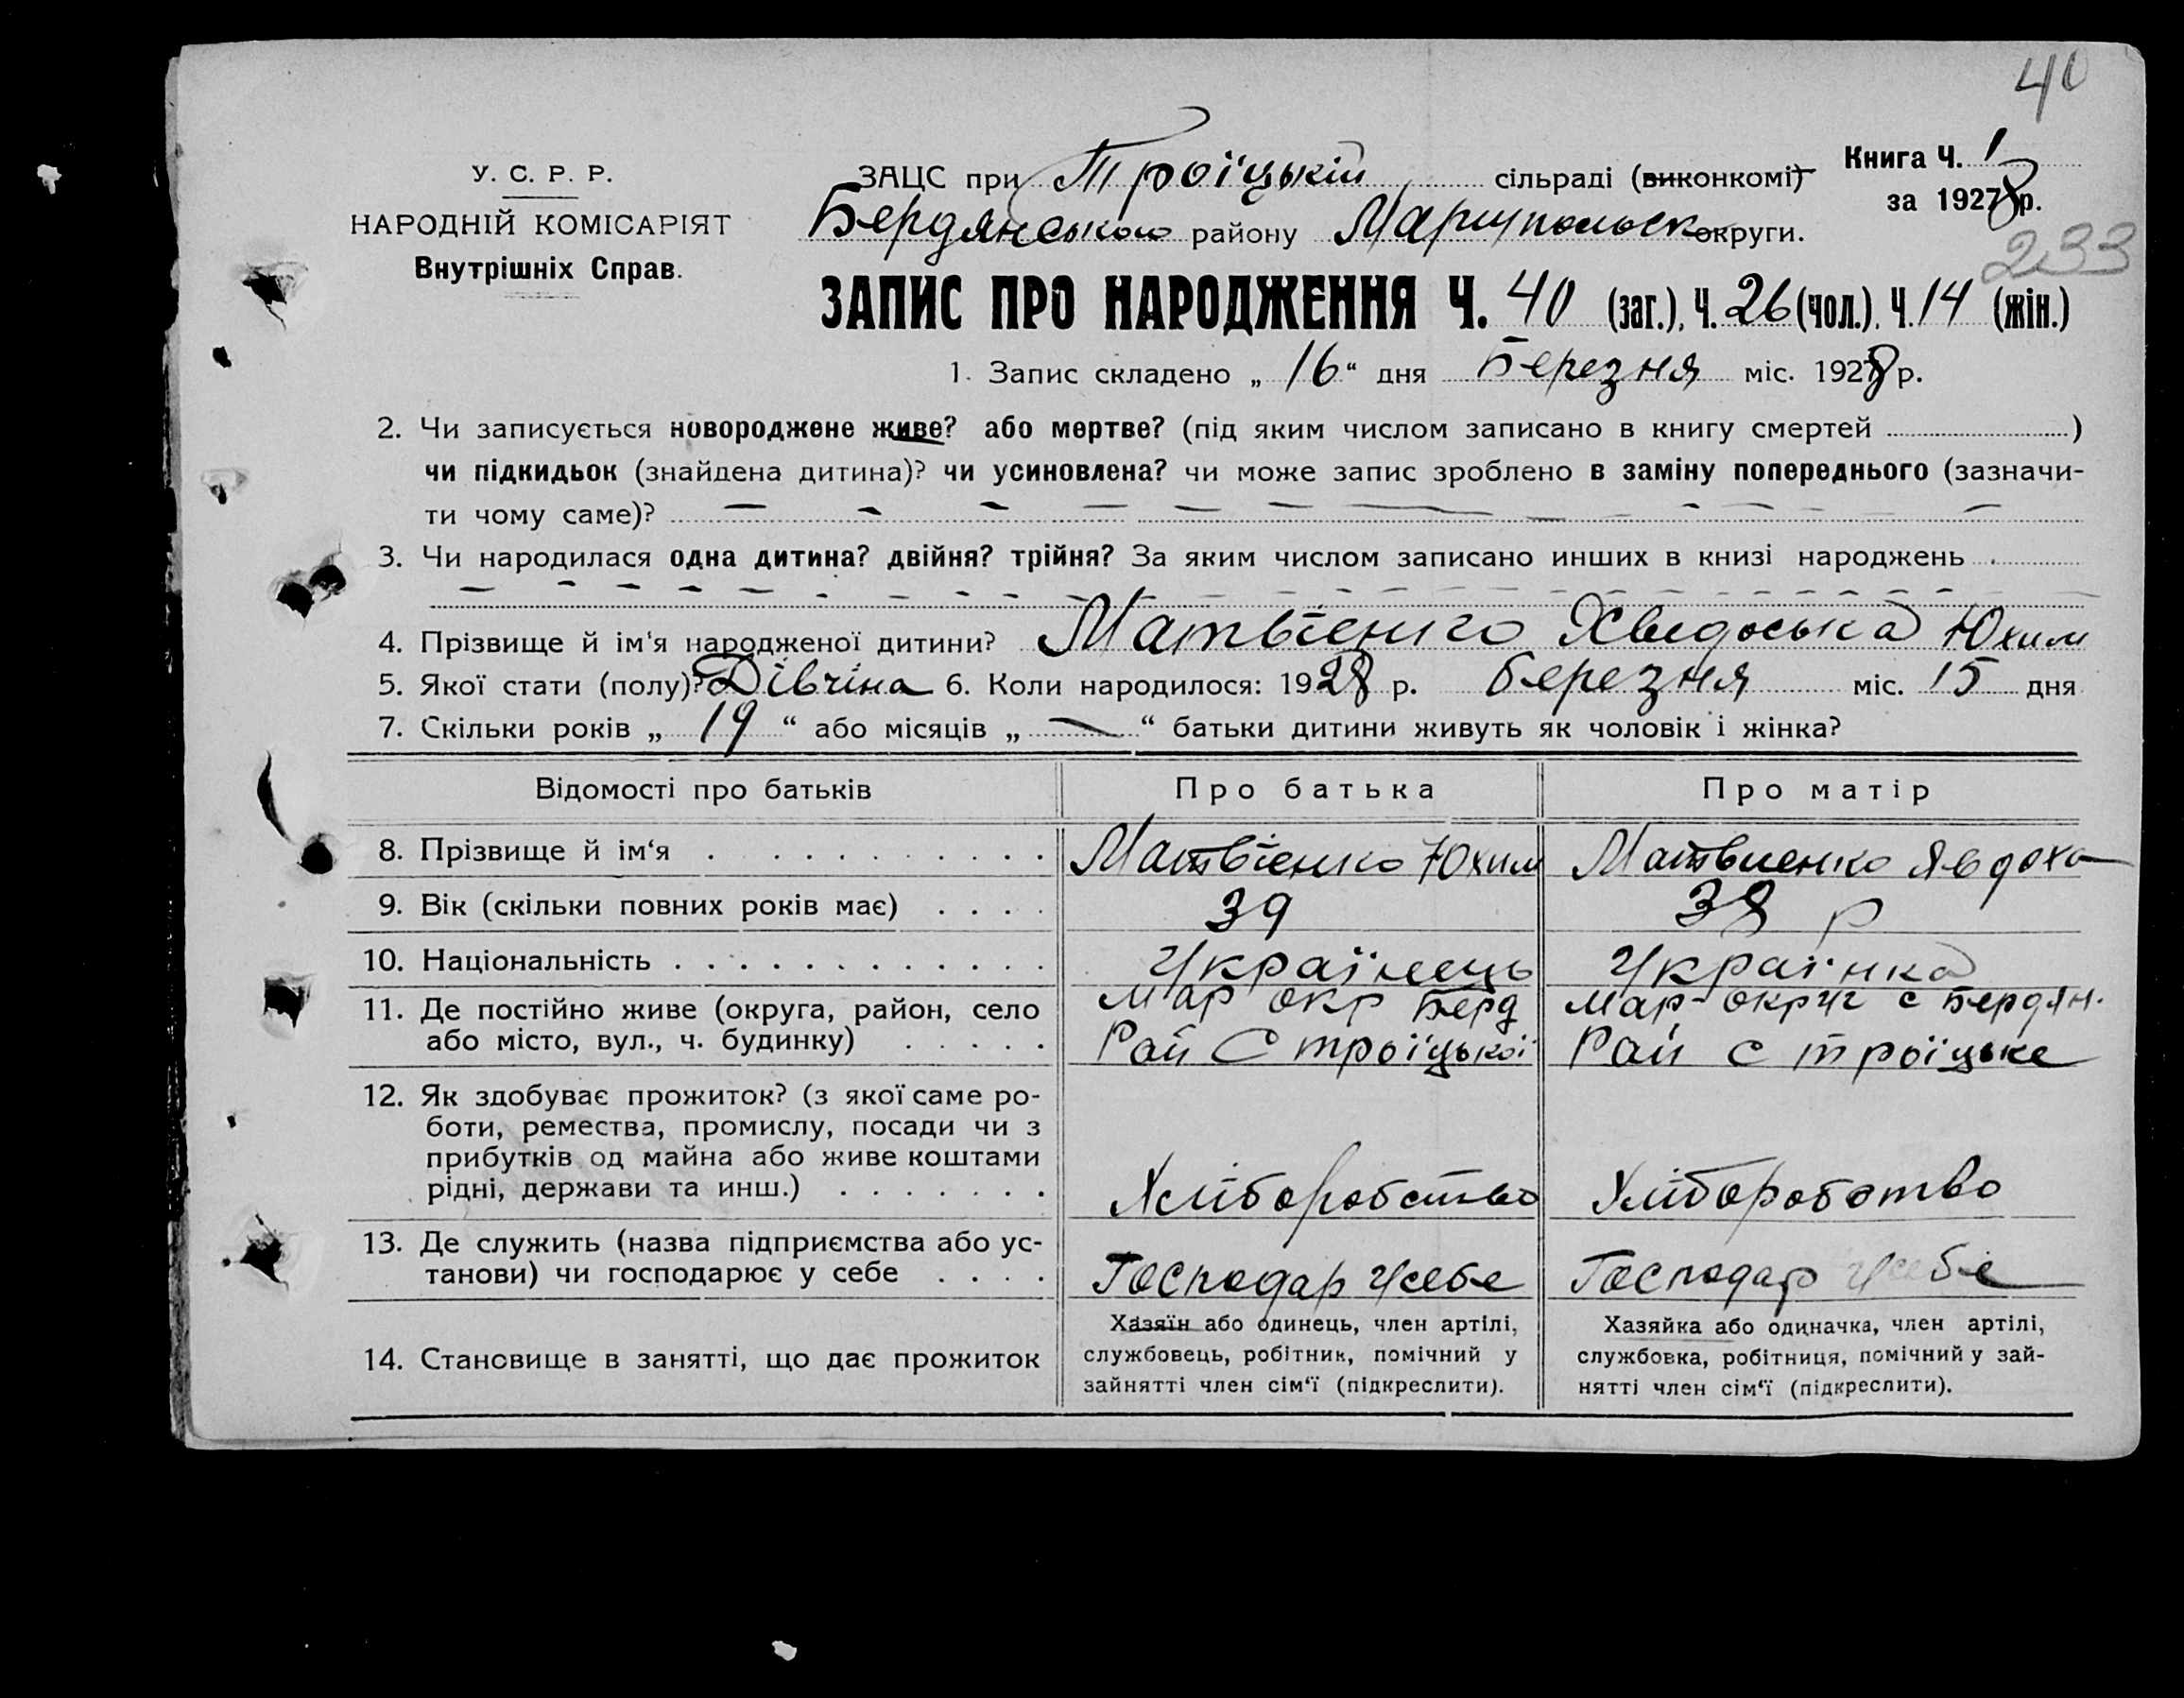 40
У. С. Р. Р.
НАРОДНІЙ КОМІСАРІЯТ
Внутрішніх Справ.
ЗАЦС при Троїцькій сільраді (виконкомі)
Бердянського району Маріупольськ округи.
Книга Ч. 1
за 1928 р.
233
ЗАПИС ПРО НАРОДЖЕННЯ Ч. 40 (заг.), Ч. 26 (чол.), Ч. 14 (жін.)
1. Запис складено „ 16 “ дня Березня міс. 1928 р.
2. Чи записується новороджене живе? або мертве? (під яким числом записано в книгу смертей )
чи підкидьок (знайдена дитина)? чи усиновлена? чи може запис зроблено в заміну попереднього (зазначи-
ти чому саме)? — — — — — — — — — — —
3. Чи народилася одна дитина? двійня? трійня? За яким числом записано инших в книзі народжень
4. Прізвище й ім'я народженої дитини? Матвієнко Хведоська Юхим
5. Якої стати (полу)? Дівчіна 6. Коли народилося: 1928 р. березня міс. 15 дня
7. Скільки років „ 19 “ або місяців „ — “ батьки дитини живуть як чоловік і жінка?
Відомості про батьків Про батька Про матір
8. Прізвище й ім'я Матвієнко Юхим Матвиенко Явдоха
9. Вік (скільки повних років має) 39 38 р
10. Національність Українець Українка
11. Де постійно живе (округа, район, село Мар окр Берд Мар-округ с Бердян.
або місто, вул., ч. будинку) Рай С троїцької Рай с троїцьке
12. Як здобуває прожиток? (з якої саме ро-
боти, ремества, промислу, посади чи з
прибутків од майна або живе коштами
рідні, держави та инш.) Хліборобство Хліборобство
13. Де служить (назва підприємства або ус-
танови) чи господарює у себе Господар усебе Господар усебе
14. Становище в занятті, що дає прожиток
Хазяїн або одинець, член артілі,
службовець, робітник, помічний у
зайнятті член сім'ї (підкреслити).
Хазяйка або одиначка, член артілі,
службовка, робітниця, помічний у зай-
нятті член сім'ї (підкреслити).